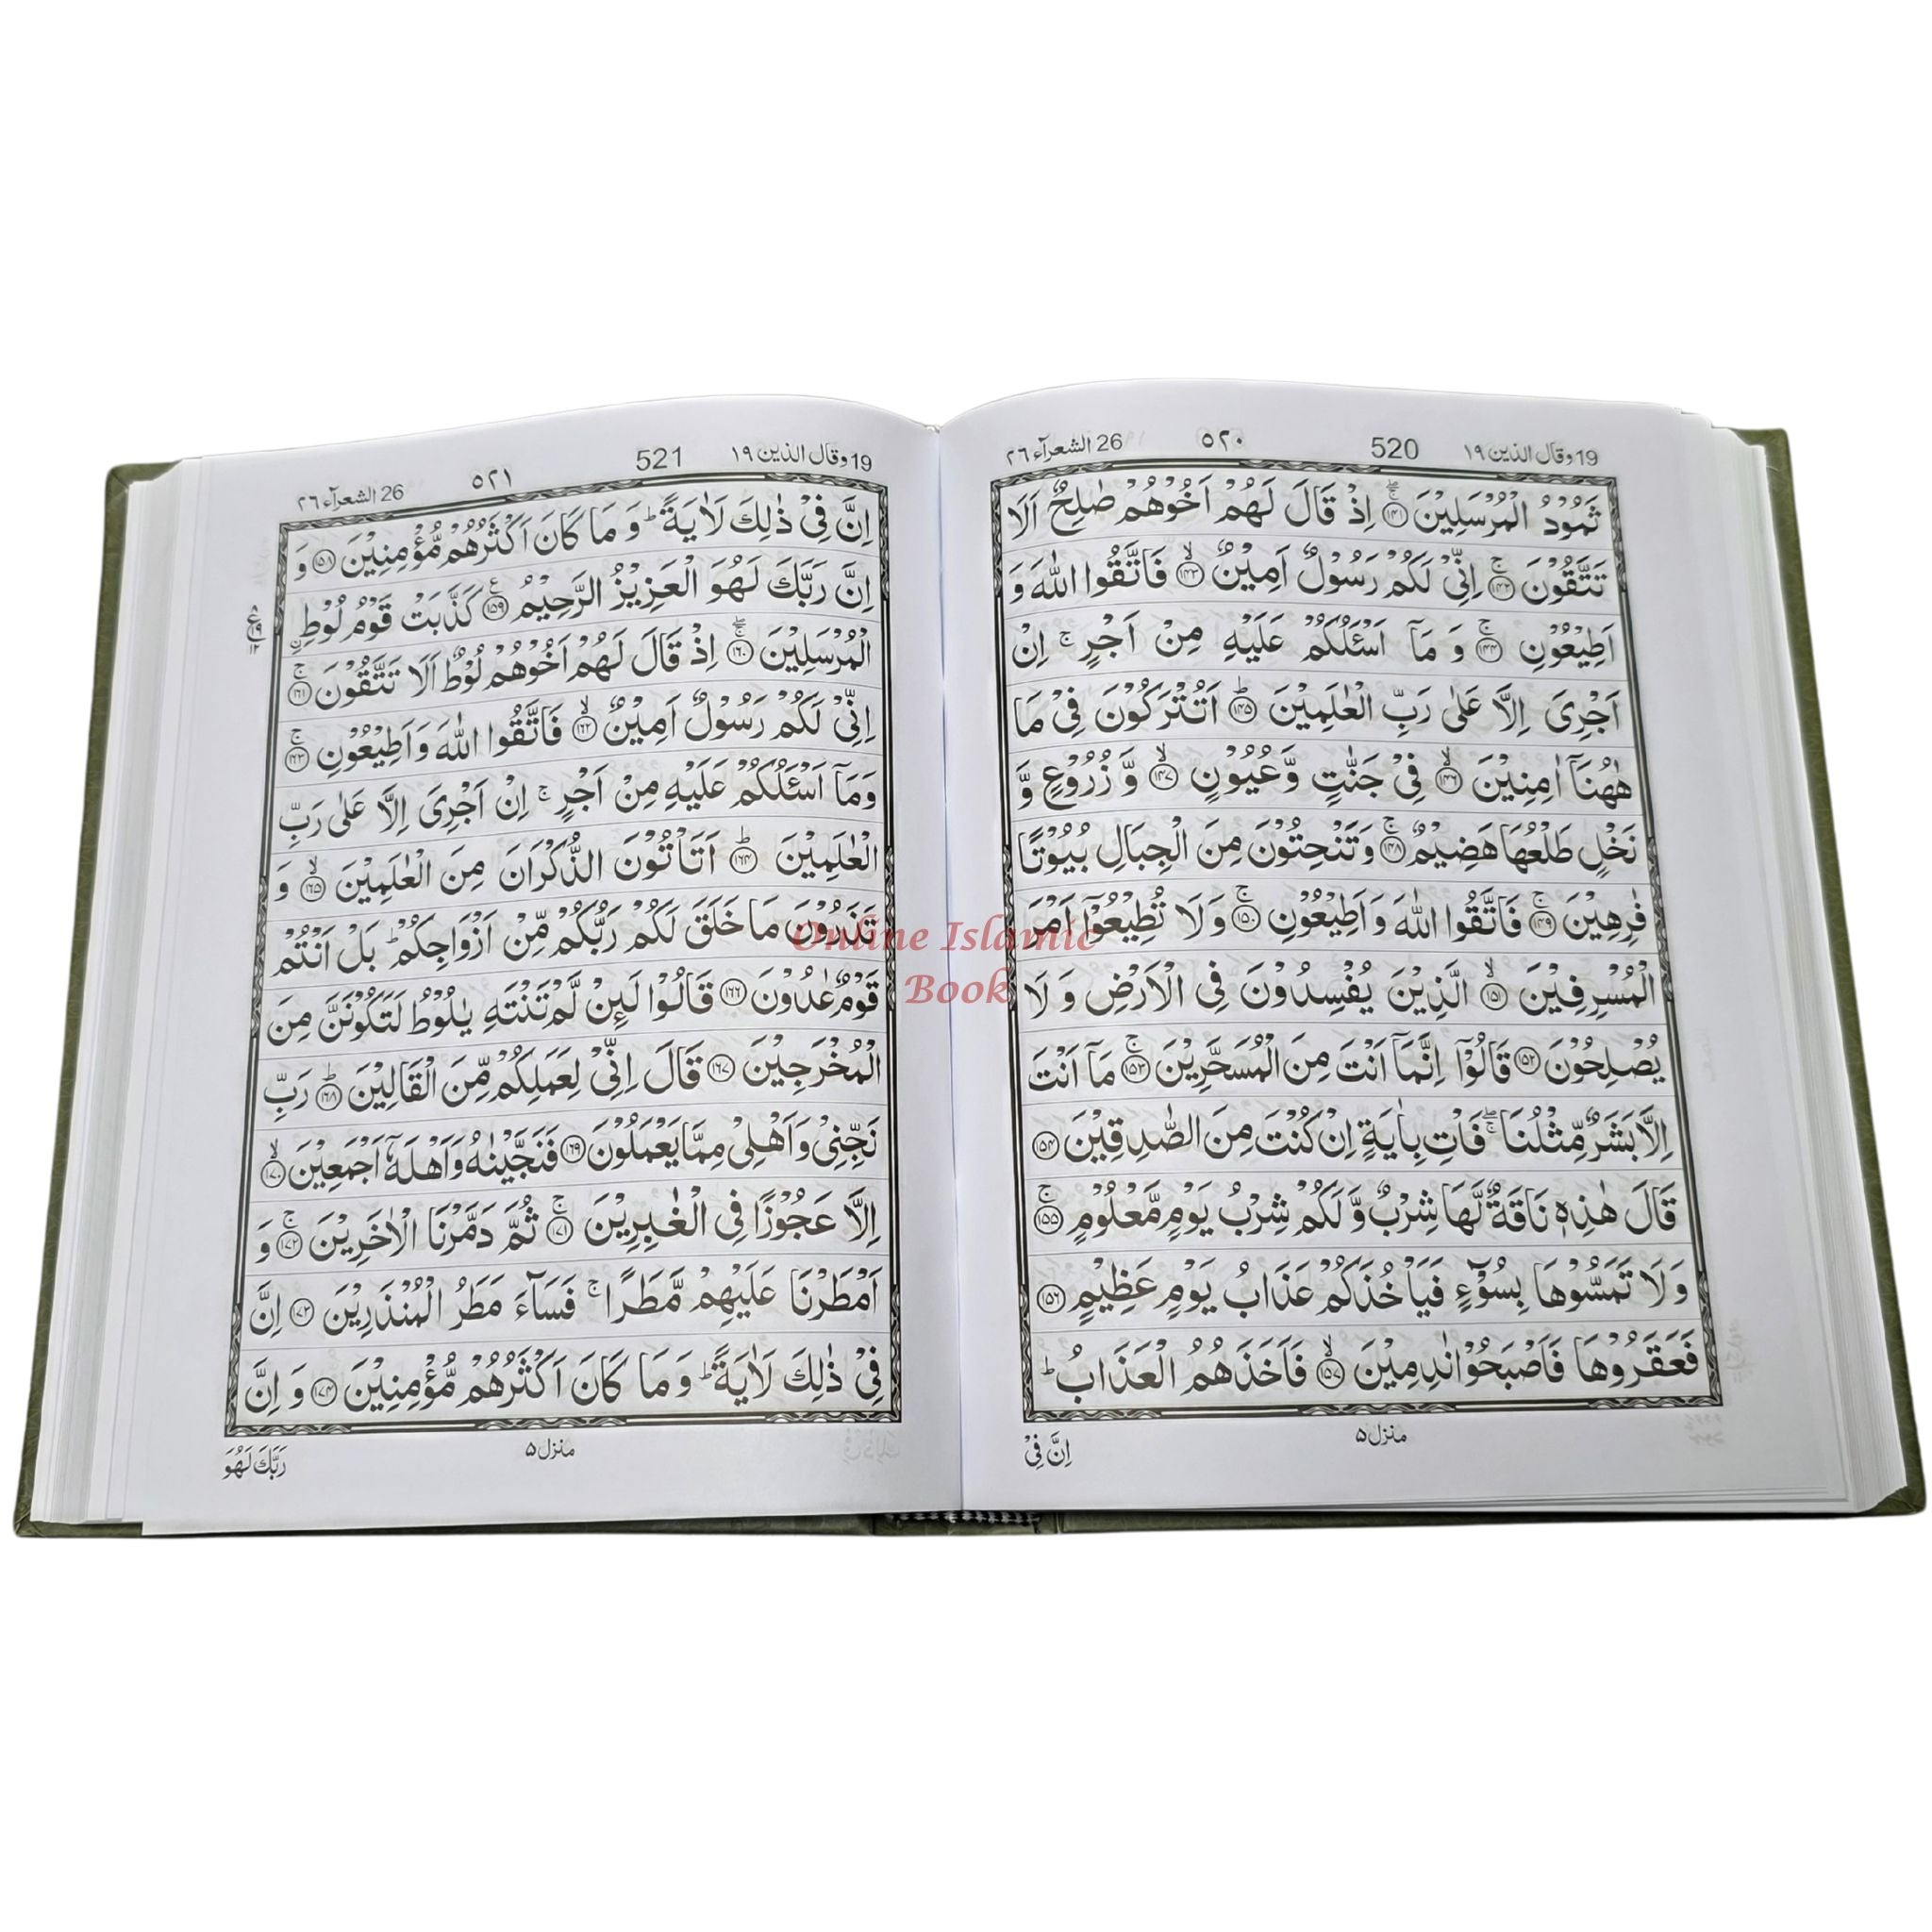 19 وقال الذين ١٩ 520 ٥٢٠ 26 الشعرآء ٢٦
ثَمُوْدُ الْمُرْسَلِيْنَ ۚۖ‏﴿۱۴۱﴾ اِذْ قَالَ لَهُمْ اَخُوْهُمْ صٰلِحٌ اَلَا
تَتَّقُوْنَ ۚ﴿۱۴۲﴾ اِنِّيْ لَكُمْ رَسُوْلٌ اَمِيْنٌ ۙ﴿۱۴۳﴾ فَاتَّقُوا اللّٰهَ وَ
اَطِيْعُوْنِ ۚ﴿۱۴۴﴾ وَ مَاۤ اَسْـَٔلُكُمْ عَلَيْهِ مِنْ اَجْرٍ ۚ اِنْ
اَجْرِيَ اِلَّا عَلٰى رَبِّ الْعٰلَمِيْنَ ؕ﴿۱۴۵﴾ اَتُتْرَكُوْنَ فِيْ مَا
هٰهُنَاۤ اٰمِنِيْنَ ۙ﴿۱۴۶﴾ فِيْ جَنّٰتٍ وَّعُيُوْنٍ ۙ﴿۱۴۷﴾ وَّ زُرُوْعٍ وَّ
نَخْلٍ طَلْعُهَا هَضِيْمٌ ۚ﴿۱۴۸﴾ وَتَنْحِتُوْنَ مِنَ الْجِبَالِ بُيُوْتًا
فٰرِهِيْنَ ۚ﴿۱۴۹﴾ فَاتَّقُوا اللّٰهَ وَاَطِيْعُوْنِ ۚ﴿۱۵۰﴾ وَلَا تُطِيْعُوْۤا اَمْرَ
الْمُسْرِفِيْنَ ۙ﴿۱۵۱﴾ الَّذِيْنَ يُفْسِدُوْنَ فِي الْاَرْضِ وَلَا
يُصْلِحُوْنَ ﴿۱۵۲﴾ قَالُوْۤا اِنَّمَاۤ اَنْتَ مِنَ الْمُسَحَّرِيْنَ ۚ﴿۱۵۳﴾ مَاۤ اَنْتَ
اِلَّا بَشَرٌ مِّثْلُنَا ۚۖ فَاْتِ بِاٰيَةٍ اِنْ كُنْتَ مِنَ الصّٰدِقِيْنَ ﴿۱۵۴﴾
قَالَ هٰذِهٖ نَاقَةٌ لَّهَا شِرْبٌ وَّلَكُمْ شِرْبُ يَوْمٍ مَّعْلُوْمٍ ۚ﴿۱۵۵﴾
وَلَا تَمَسُّوْهَا بِسُوْٓءٍ فَيَاْخُذَكُمْ عَذَابُ يَوْمٍ عَظِيْمٍ ﴿۱۵۶﴾
فَعَقَرُوْهَا فَاَصْبَحُوْا نٰدِمِيْنَ ۙ﴿۱۵۷﴾ فَاَخَذَهُمُ الْعَذَابُ ؕ
منزل ۵
اِنَّ فِيْ
19 وقال الذين ١٩ 521 ٥٢١ 26 الشعرآء ٢٦
اِنَّ فِيْ ذٰلِكَ لَاٰيَةً ؕ وَ مَا كَانَ اَكْثَرُهُمْ مُّؤْمِنِيْنَ ﴿۱۵۸﴾ وَ
اِنَّ رَبَّكَ لَهُوَ الْعَزِيْزُ الرَّحِيْمُ ﴿۱۵۹﴾ كَذَّبَتْ قَوْمُ لُوْطِ ۨ
الْمُرْسَلِيْنَ ۚۖ﴿۱۶۰﴾ اِذْ قَالَ لَهُمْ اَخُوْهُمْ لُوْطٌ اَلَا تَتَّقُوْنَ ۚ﴿۱۶۱﴾
اِنِّيْ لَكُمْ رَسُوْلٌ اَمِيْنٌ ۙ﴿۱۶۲﴾ فَاتَّقُوا اللّٰهَ وَاَطِيْعُوْنِ ۚ﴿۱۶۳﴾
وَمَاۤ اَسْـَٔلُكُمْ عَلَيْهِ مِنْ اَجْرٍ ۚ اِنْ اَجْرِيَ اِلَّا عَلٰى رَبِّ
الْعٰلَمِيْنَ ؕ﴿۱۶۴﴾ اَتَاْتُوْنَ الذُّكْرَانَ مِنَ الْعٰلَمِيْنَ ۙ﴿۱۶۵﴾ وَ
تَذَرُوْنَ مَا خَلَقَ لَكُمْ رَبُّكُمْ مِّنْ اَزْوَاجِكُمْ ؕ بَلْ اَنْتُمْ
قَوْمٌ عٰدُوْنَ ﴿۱۶۶﴾ قَالُوْا لَئِنْ لَّمْ تَنْتَهِ يٰلُوْطُ لَتَكُوْنَنَّ مِنَ
الْمُخْرَجِيْنَ ﴿۱۶۷﴾ قَالَ اِنِّيْ لِعَمَلِكُمْ مِّنَ الْقَالِيْنَ ؕ﴿۱۶۸﴾ رَبِّ
نَجِّنِيْ وَاَهْلِيْ مِمَّا يَعْمَلُوْنَ ﴿۱۶۹﴾ فَنَجَّيْنٰهُ وَاَهْلَهٗۤ اَجْمَعِيْنَ ۙ﴿۱۷۰﴾
اِلَّا عَجُوْزًا فِي الْغٰبِرِيْنَ ۚ﴿۱۷۱﴾ ثُمَّ دَمَّرْنَا الْاٰخَرِيْنَ ۚ﴿۱۷۲﴾ وَ
اَمْطَرْنَا عَلَيْهِمْ مَّطَرًا ۚ فَسَآءَ مَطَرُ الْمُنْذَرِيْنَ ﴿۱۷۳﴾ اِنَّ
فِيْ ذٰلِكَ لَاٰيَةً ؕ وَ مَا كَانَ اَكْثَرُهُمْ مُّؤْمِنِيْنَ ﴿۱۷۴﴾ وَ اِنَّ
منزل ۵
رَبَّكَ لَهُوَ
Online Islamic
Book